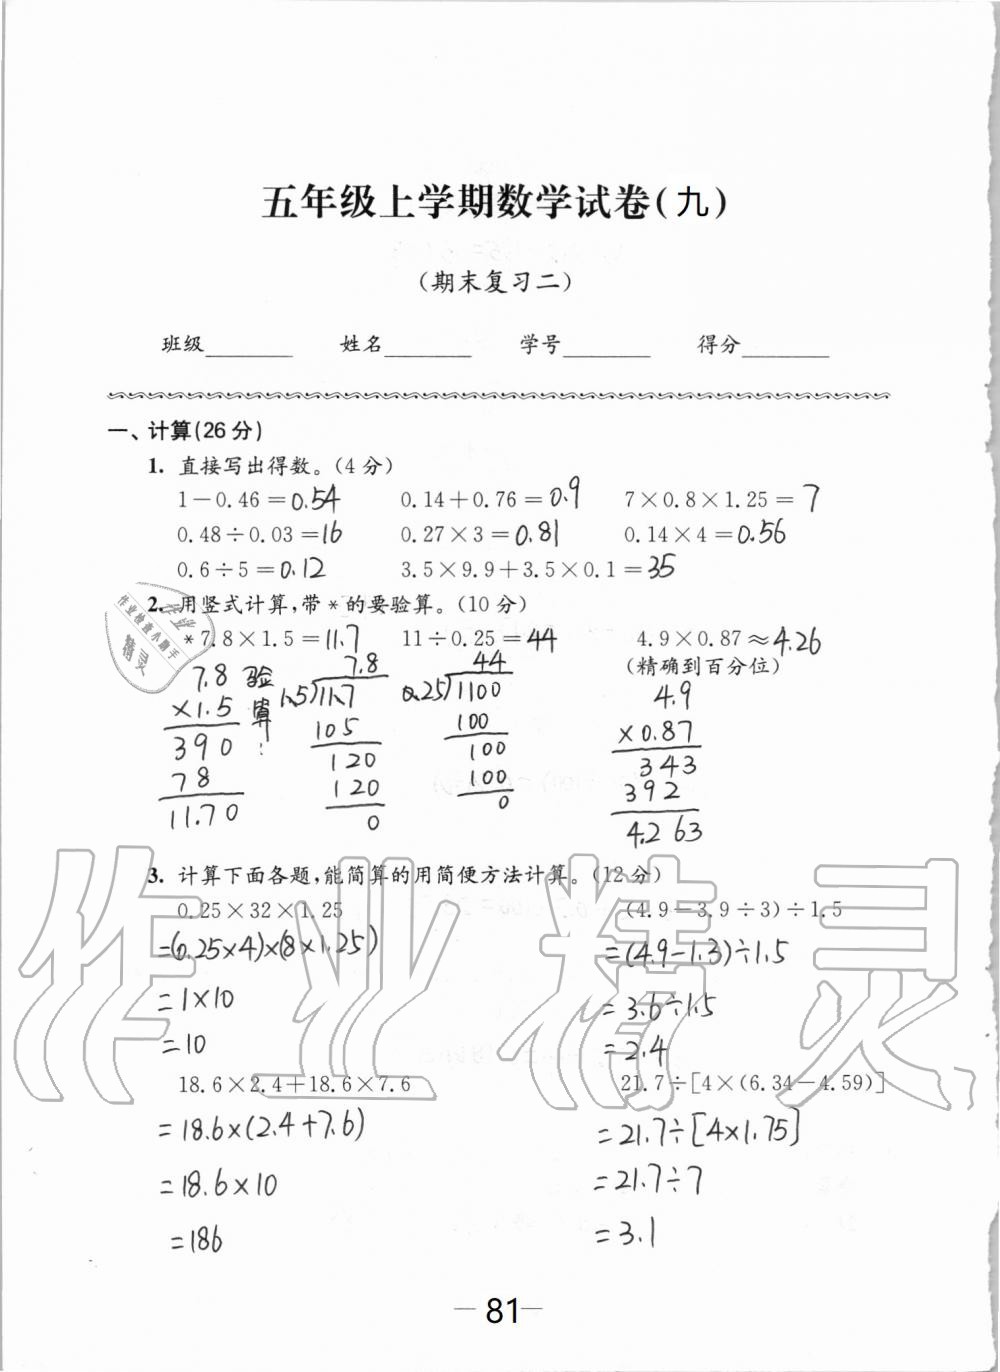 五年级上学期数学试卷(九)
(期末复习二)
班级 姓名 学号 得分
一、计算(26分)
1. 直接写出得数。(4分)
1－0.46＝0.54 0.14＋0.76＝0.9 7×0.8×1.25＝7
0.48÷0.03＝16 0.27×3＝0.81 0.14×4＝0.56
0.6÷5＝0.12 3.5×9.9＋3.5×0.1＝35
2. 用竖式计算,带*的要验算。(10分)
*7.8×1.5＝11.7 11÷0.25＝44 4.9×0.87≈4.26
(精确到百分位)
7.8
×1.5
390
78
11.70
验算:
7.8
1.5)11.7
105
120
120
0
44
0.25)1100
100
100
100
0
4.9
×0.87
343
392
4.263
3. 计算下面各题,能简算的用简便方法计算。(12分)
0.25×32×1.25 (4.9－3.9÷3)÷1.5
=(0.25×4)×(8×1.25) =(4.9-1.3)÷1.5
=1×10 =3.6÷1.5
=10 =2.4
18.6×2.4＋18.6×7.6 21.7÷[4×(6.34－4.59)]
=18.6×(2.4+7.6) =21.7÷[4×1.75]
=18.6×10 =21.7÷7
=186 =3.1
— 81 —
作业精灵
作业检查小助手
作业
精灵